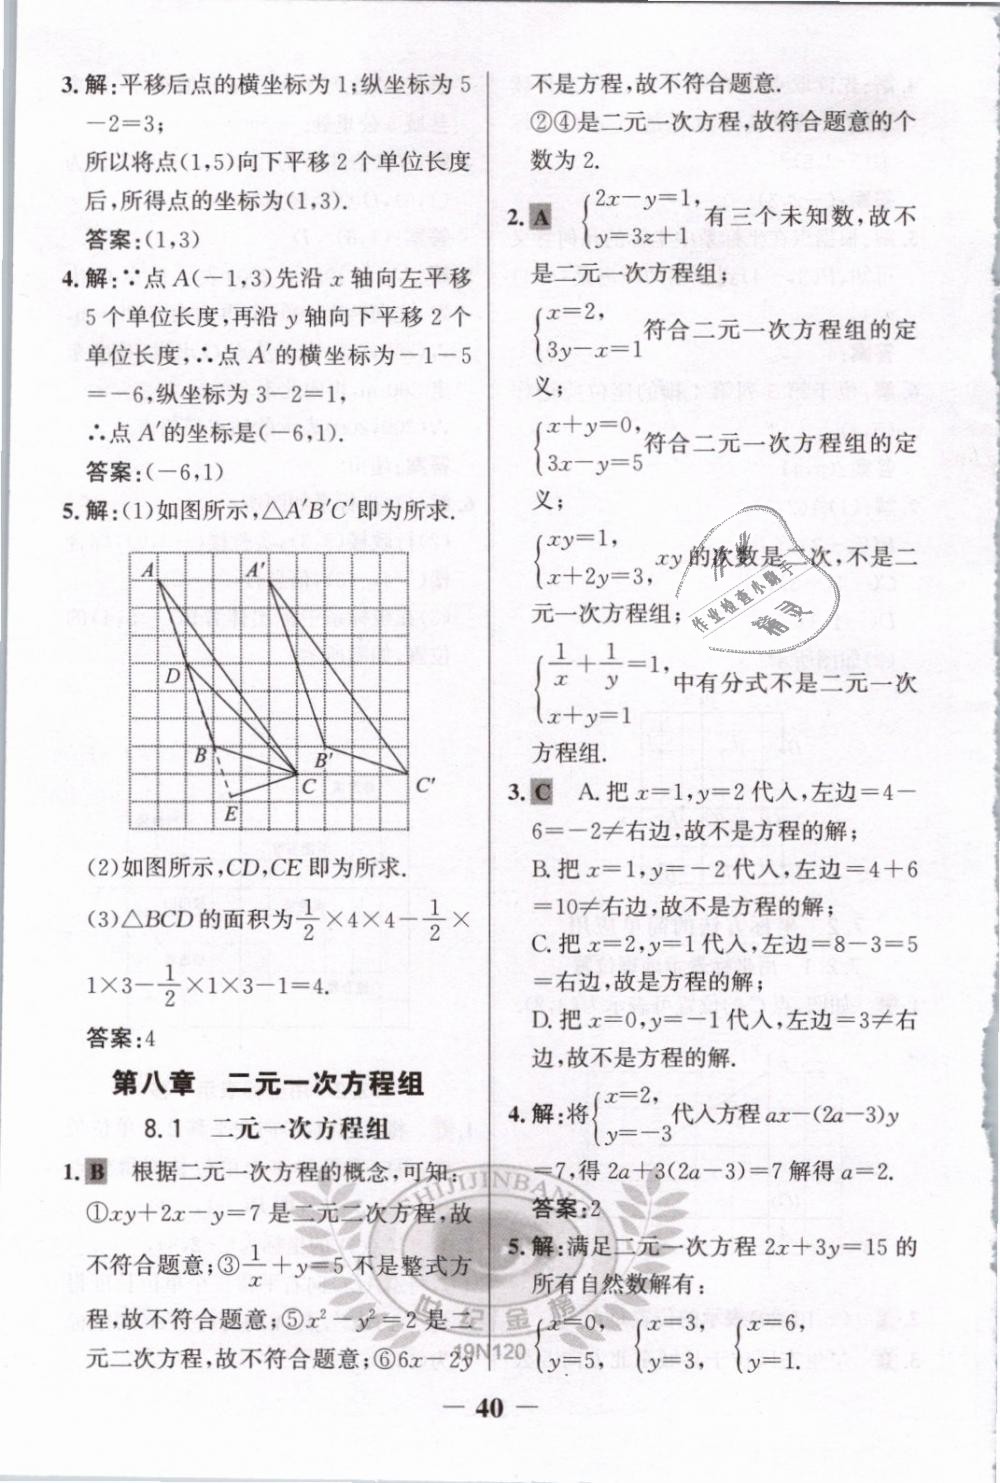 3. 解:平移后点的横坐标为1;纵坐标为5
-2=3;
所以将点(1,5)向下平移2个单位长度
后,所得点的坐标为(1,3).
答案:(1,3)
4. 解:∵点A(-1,3)先沿x轴向左平移
5个单位长度,再沿y轴向下平移2个
单位长度,∴点A′的横坐标为-1-5
=-6,纵坐标为3-2=1,
∴点A′的坐标是(-6,1).
答案:(-6,1)
5. 解:(1)如图所示,△A′B′C′即为所求.
A A′
D
B B′
C C′
E
(2)如图所示,CD,CE即为所求.
(3)△BCD的面积为1/2×4×4-1/2×
1×3-1/2×1×3-1=4.
答案:4
第八章 二元一次方程组
8.1 二元一次方程组
1. B 根据二元一次方程的概念,可知:
①xy+2x-y=7是二元二次方程,故
不符合题意;③1/x+y=5不是整式方
程,故不符合题意;⑤x²-y²=2是二
元二次方程,故不符合题意;⑥6x-2y
不是方程,故不符合题意.
②④是二元一次方程,故符合题意的个
数为2.
2. A {2x-y=1, y=3z+1 有三个未知数,故不
是二元一次方程组;
{x=2, 3y-x=1 符合二元一次方程组的定
义;
{x+y=0, 3x-y=5 符合二元一次方程组的定
义;
{xy=1, x+2y=3, xy的次数是二次,不是二
元一次方程组;
{1/x+1/y=1, x+y=1 中有分式不是二元一次
方程组.
3. C A.把x=1,y=2代入,左边=4-
6=-2≠右边,故不是方程的解;
B.把x=1,y=-2代入,左边=4+6
=10≠右边,故不是方程的解;
C.把x=2,y=1代入,左边=8-3=5
=右边,故是方程的解;
D.把x=0,y=-1代入,左边=3≠右
边,故不是方程的解.
4. 解:将{x=2, y=-3 代入方程ax-(2a-3)y
=7,得2a+3(2a-3)=7解得a=2.
答案:2
5. 解:满足二元一次方程2x+3y=15的
所有自然数解有:
{x=0, y=5, {x=3, y=3, {x=6, y=1.
作业检查小助手
SHIJIJINBANG
世纪金榜
19N120
— 40 —